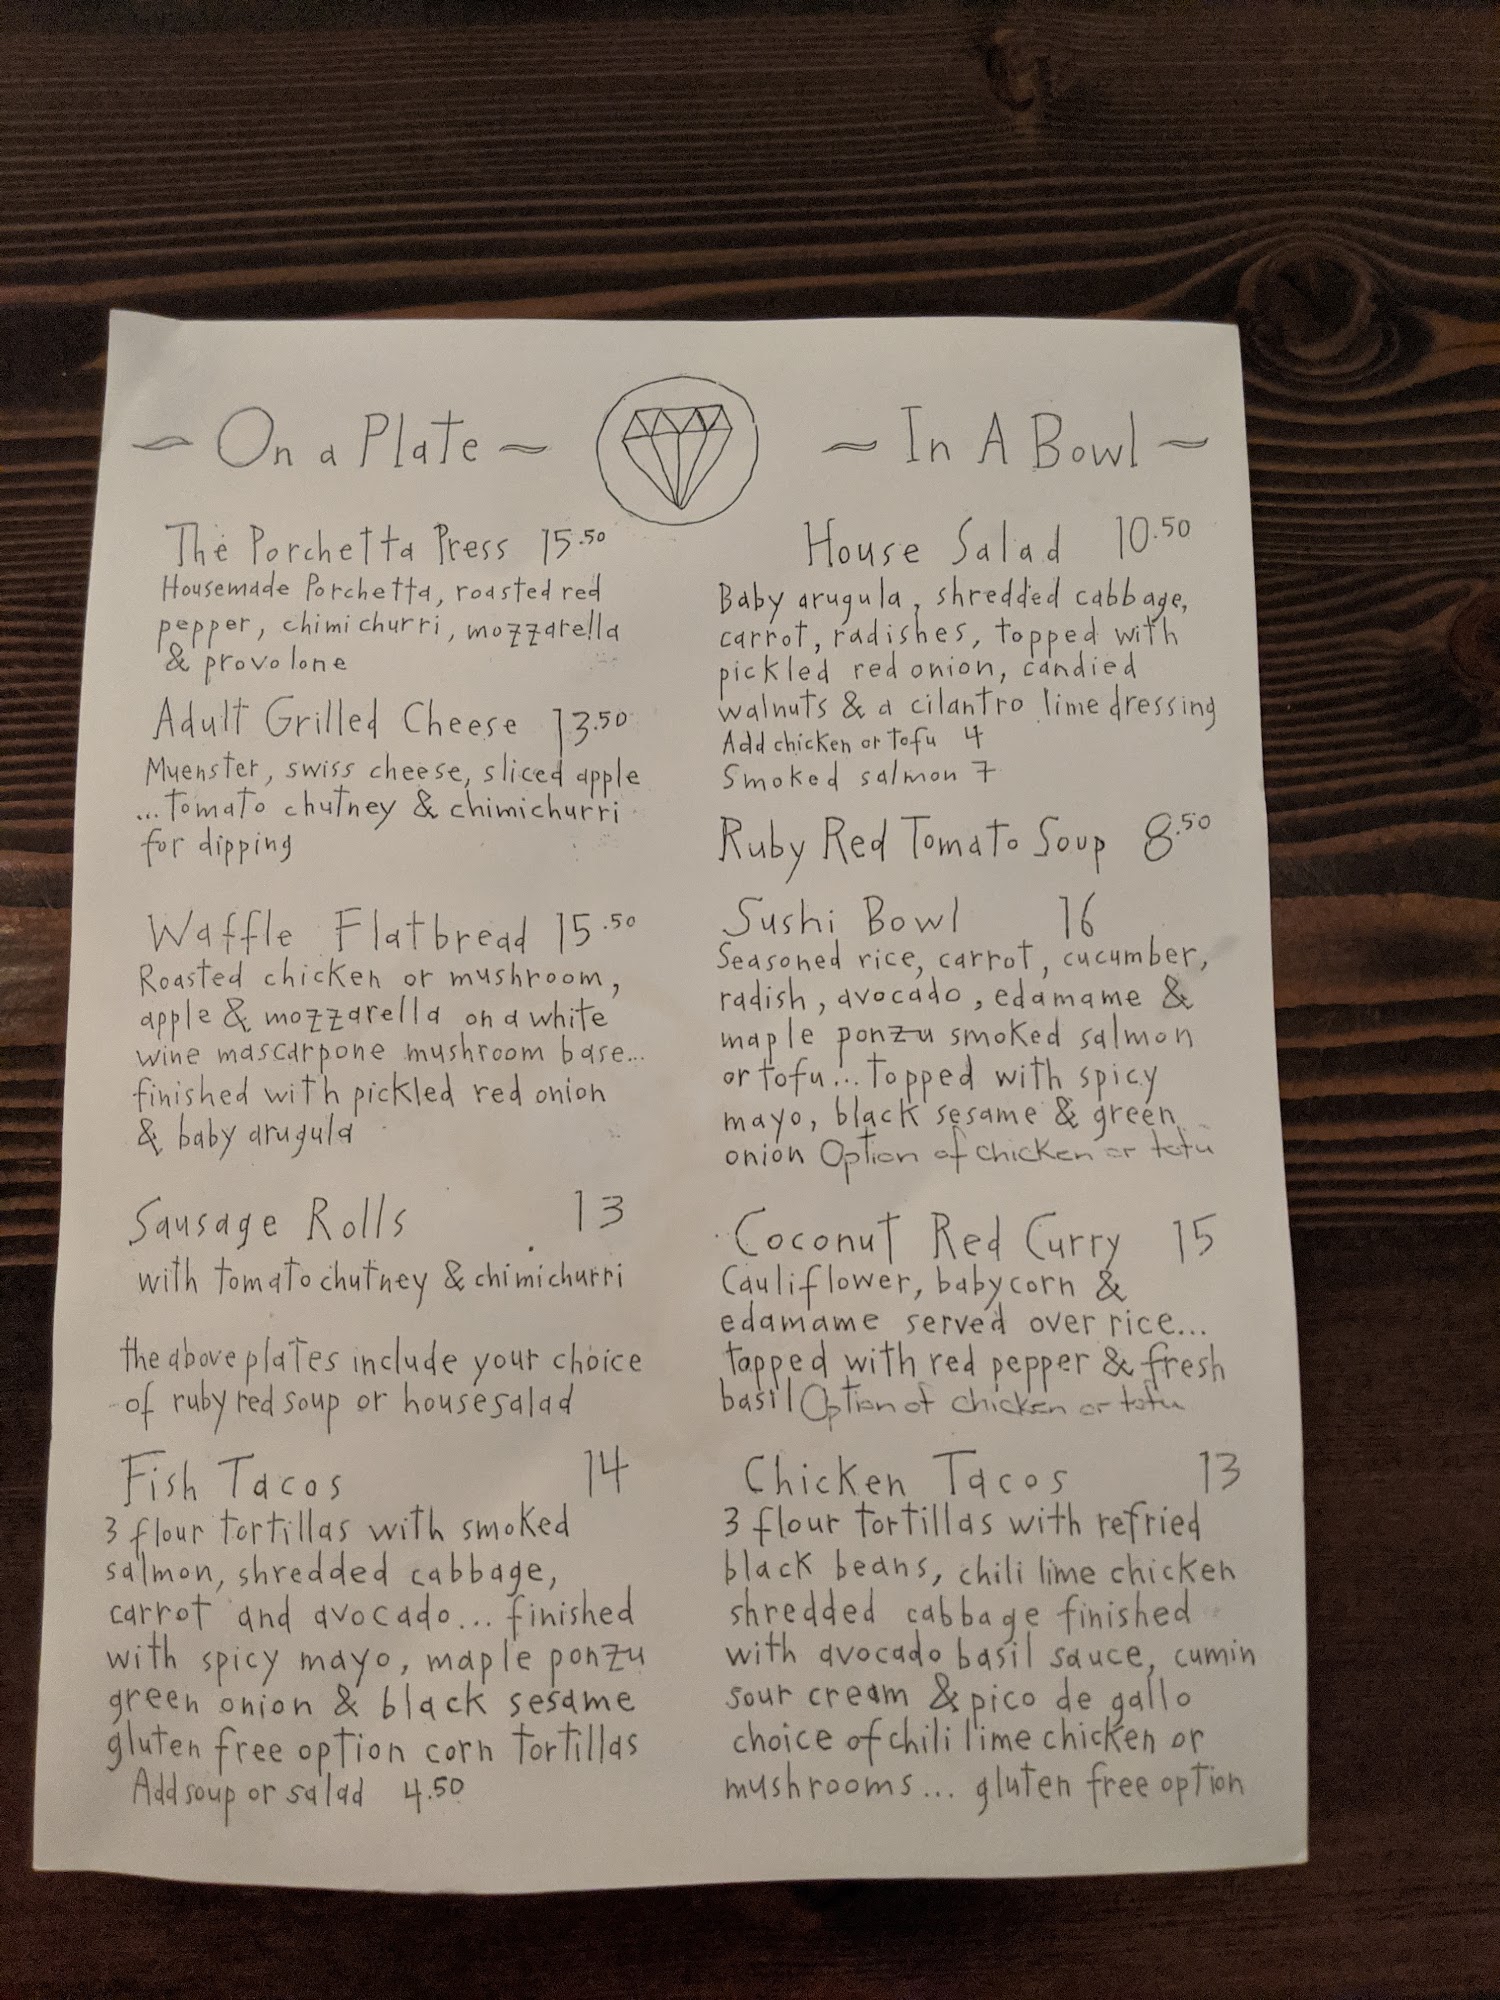 ~ On a Plate ~
The Porchetta Press 15.50
Housemade Porchetta, roasted red
pepper, chimichurri, mozzarella
& provolone
Adult Grilled Cheese 13.50
Muenster, swiss cheese, sliced apple
...tomato chutney & chimichurri
for dipping
Waffle Flatbread 15.50
Roasted chicken or mushroom,
apple & mozzarella on a white
wine mascarpone mushroom base...
finished with pickled red onion
& baby arugula
Sausage Rolls 13
with tomato chutney & chimichurri
the above plates include your choice
of ruby red soup or house salad
Fish Tacos 14
3 flour tortillas with smoked
salmon, shredded cabbage,
carrot and avocado... finished
with spicy mayo, maple ponzu
green onion & black sesame
gluten free option corn tortillas
Add soup or salad 4.50
~ In A Bowl ~
House Salad 10.50
Baby arugula, shredded cabbage,
carrot, radishes, topped with
pickled red onion, candied
walnuts & a cilantro lime dressing
Add chicken or tofu 4
Smoked salmon 7
Ruby Red Tomato Soup 8.50
Sushi Bowl 16
Seasoned rice, carrot, cucumber,
radish, avocado, edamame &
maple ponzu smoked salmon
or tofu... topped with spicy
mayo, black sesame & green
onion Option of chicken or tofu
Coconut Red Curry 15
Cauliflower, baby corn &
edamame served over rice...
topped with red pepper & fresh
basil Option of chicken or tofu
Chicken Tacos 13
3 flour tortillas with refried
black beans, chili lime chicken
shredded cabbage finished
with avocado basil sauce, cumin
sour cream & pico de gallo
choice of chili lime chicken or
mushrooms... gluten free option